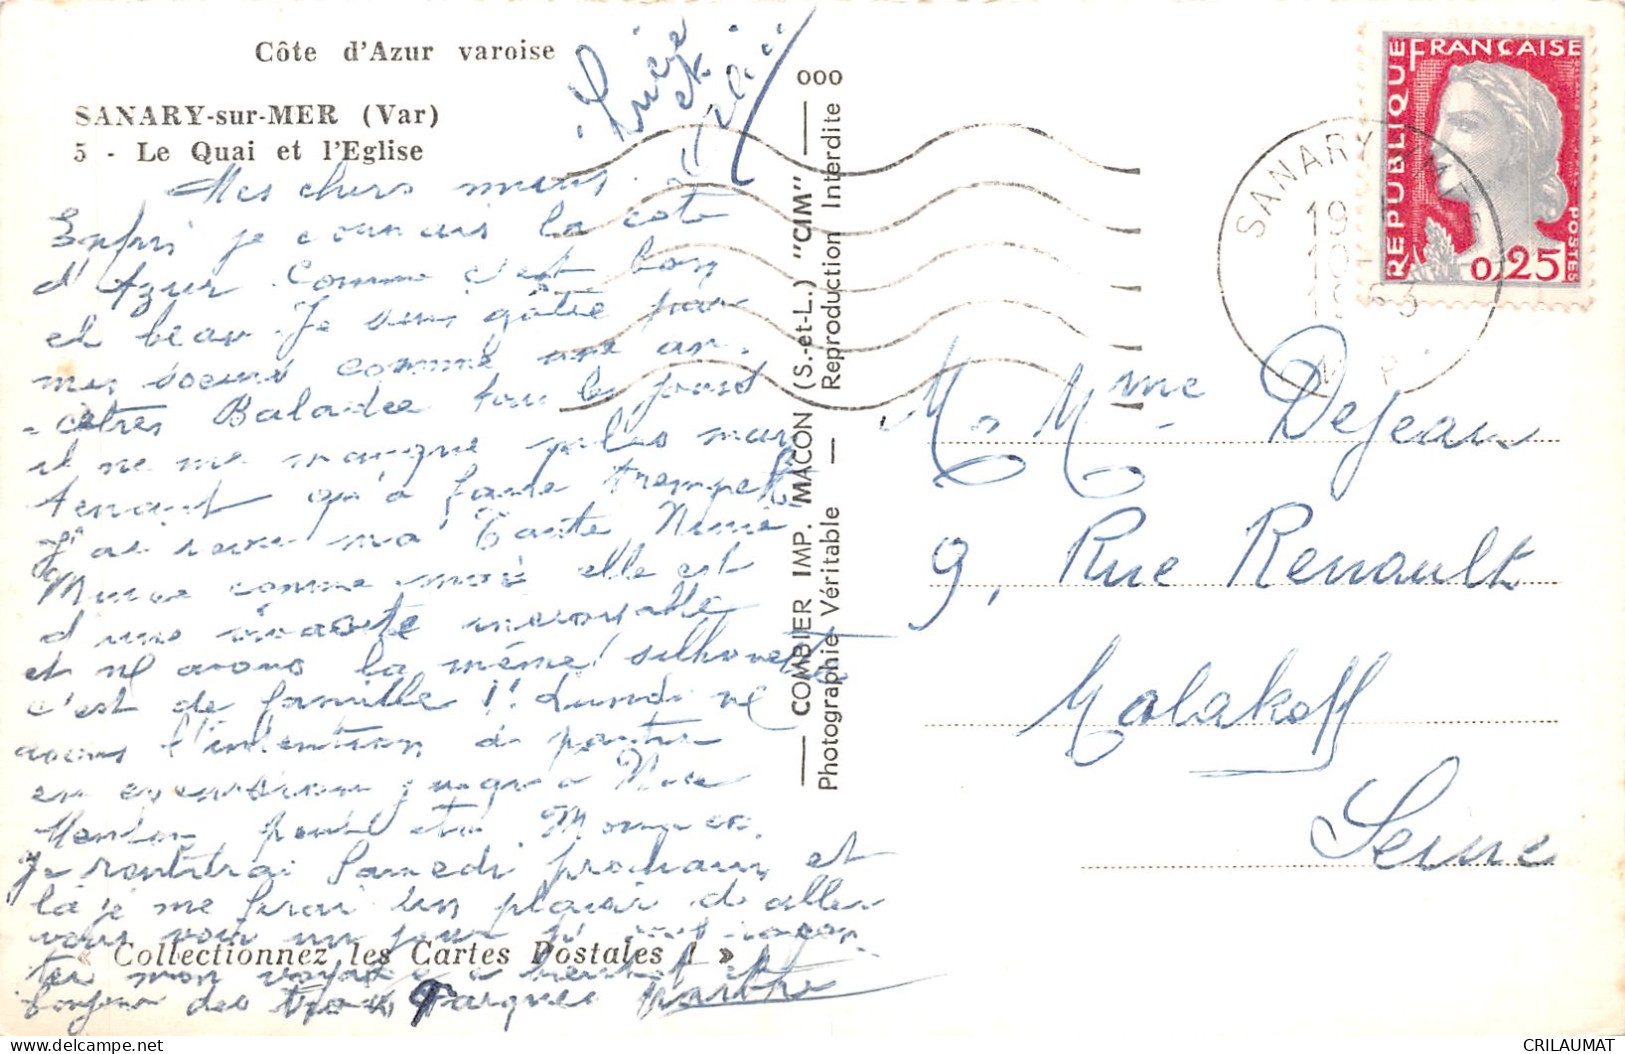 Côte d'Azur varoise
SANARY-sur-MER (Var)
5 - Le Quai et l'Eglise
Mes chers amis.
Enfin je connais la cote
d'Azur. Comme c'est bon
et beau. Je suis gâtée par
mes soeurs comme une an-
-cêtres Baladée tous les jours
il ne me manque plus main
tenant qu'à faire trempette
J'ai revu ma Tante Ninie
Mince comme moi elle est
d'une incroyable
et ns avons la même silhouette
c'est de famille !! Lundi ns
avons l'intention de partir
en excursion jusqu'à Nice
Menton peut etre Monaco.
Je rentrerai Samedi prochain et
là je me ferai un plaisir d'aller
vous voir un jour racon-
ter mon voyage à bientot et
bonjour des trois Marthe
Lucie
et
« Collectionnez les Cartes Postales ! »
COMBIER IMP. MACON (S.-et-L.) "CIM"
Photographie Véritable — Reproduction Interdite
000
REPUBLIQUE FRANÇAISE
POSTES
0,25
SANARY
19
10
1963
M. Mme Dejean
9, Rue Renault
Malakoff
Seine
CRILAUMAT